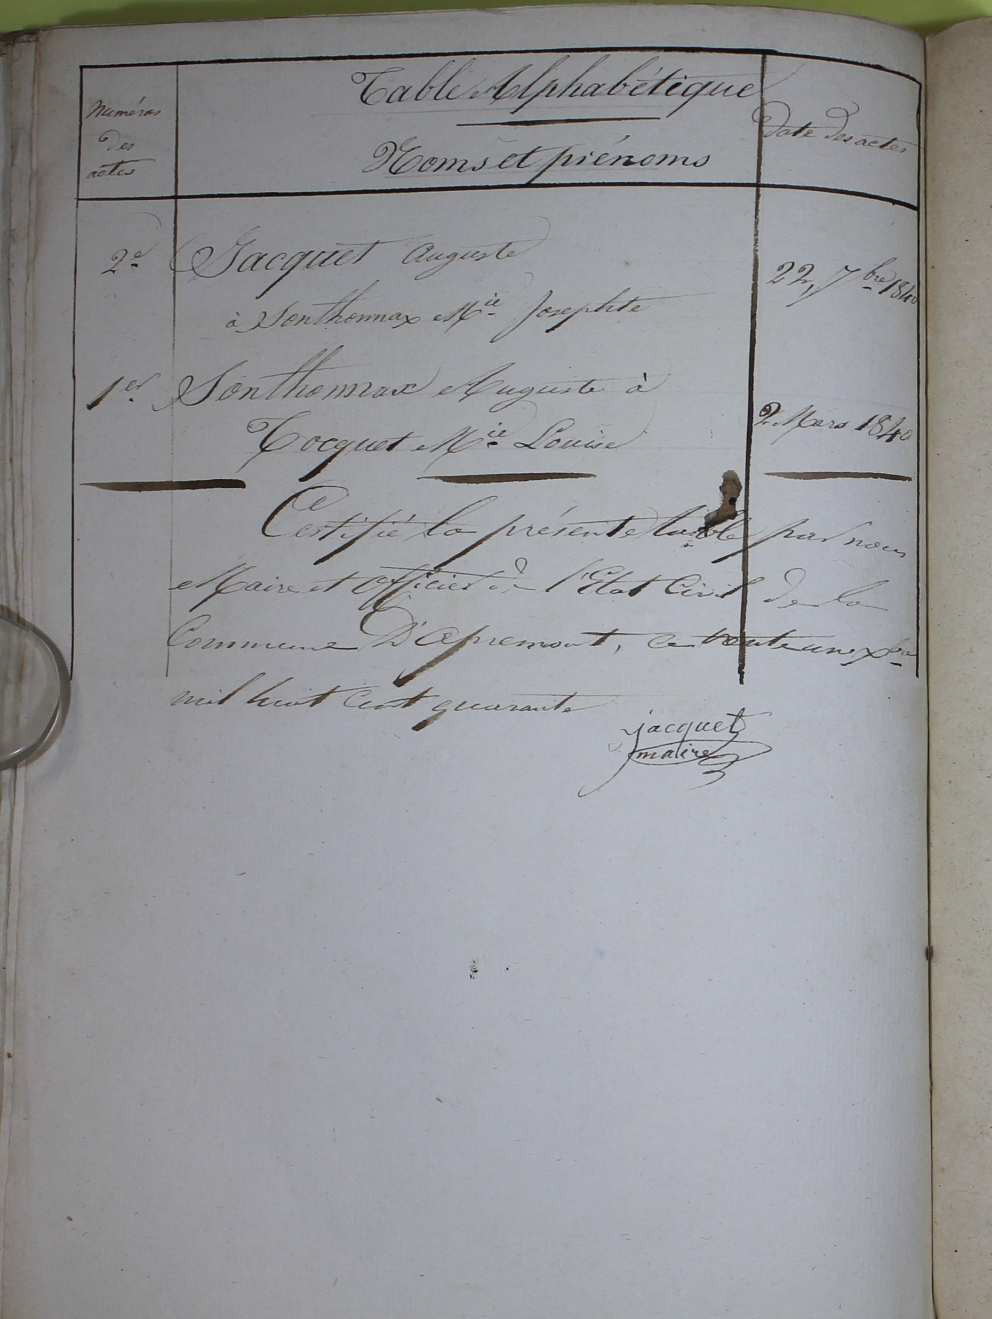 Table Alphabétique
Numéros
des
actes
Noms et prénoms
Date des actes
2e Jacquet Auguste
22 7bre 1840
à Sonthonnax Mie Josephte
1er Sonthonnax Auguste à
Tocquet Mie Louise
2 Mars 1840
Certifié la présente table par nous
Maire et Officier de l'Etat Civil de la
Commune D'apremont, ce trente un xbre
mil huit cent quarante
jacquet
maire